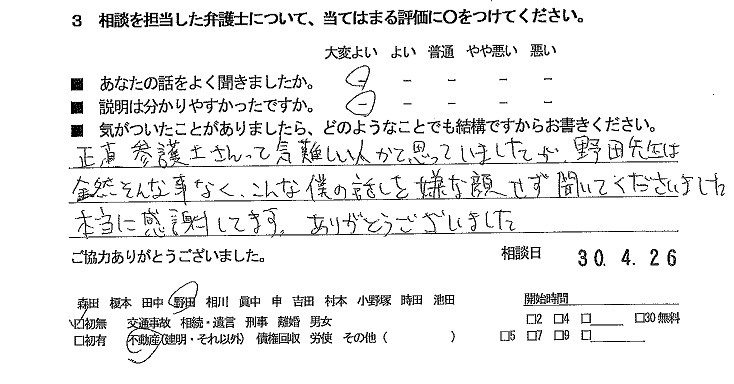 3 相談を担当した弁護士について、当てはまる評価に〇をつけてください。
大変よい よい 普通 やや悪い 悪い
■ あなたの話をよく聞きましたか。 － － － － －
■ 説明は分かりやすかったですか。 － － － － －
■ 気がついたことがありましたら、どのようなことでも結構ですからお書きください。
正直 弁護士さんって気難しい人かと思っていましたが、野田先生は
全然そんな事なく、こんな僕の話しを嫌な顔せず聞いてくださいました
本当に感謝してます。ありがとうございました
ご協力ありがとうございました。 相談日 30.4.26
森田 榎本 田中 野田 相川 眞中 申 吉田 村本 小野塚 時田 池田 開始時間
□初無 交通事故 相続・遺言 刑事 離婚 男女 □2 □4 □ □30無料
□初有 不動産(建明・それ以外) 債権回収 労使 その他（ ） □5 □7 □9 □